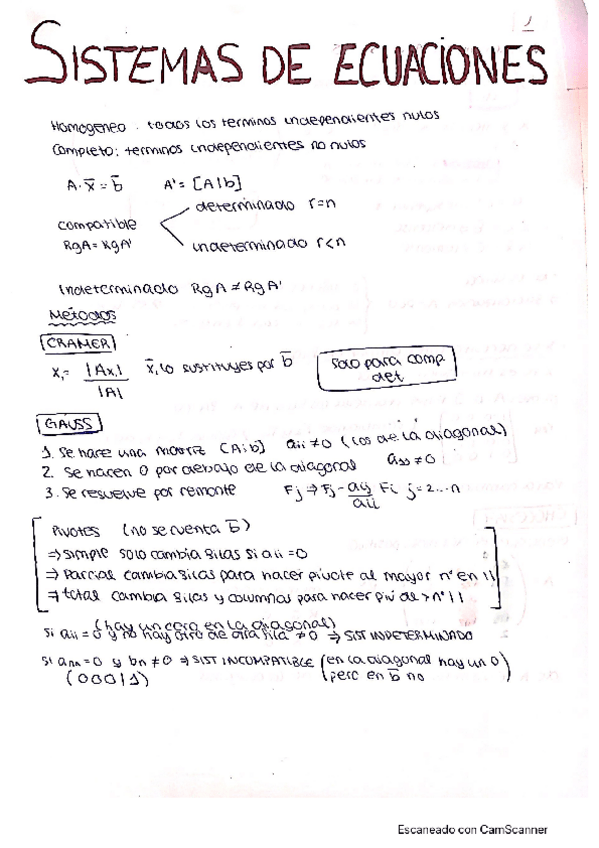 1
SISTEMAS DE ECUACIONES
Homogeneo : todos los terminos independientes nulos
Completo: terminos independientes no nulos
A·x̄ = b̄   A' = [A|b]
determinado r=n
compatible
RgA = RgA'
indeterminado r<n
Indeterminado RgA ≠ RgA'
Métodos
CRAMER
x₁ = |Ax₁| / |A|   x̄, lo sustituyes por b̄   solo para comp. det
GAUSS
1. Se hace una matriz [A:b]   aii ≠ 0 (los de la diagonal)
2. Se hacen 0 por debajo de la diagonal   ≠ 0
3. Se resuelve por remonte   Fj ⇒ Fj - aij/aii Fi   j = 2...n
Pivotes (no se cuenta b̄)
⇒ simple solo cambia filas si aii = 0
⇒ Parcial cambia filas para hacer pivote al mayor nº en | |
⇒ total cambia filas y columnas para hacer piv al > nº | |
(hay un cero en la diagonal)
si aii = 0 y no hay otro de otra fila ≠ 0 ⇒ SIST INDETERMINADO
si ann = 0 y bn ≠ 0 ⇒ SIST INCOMPATIBLE (en la diagonal hay un 0
(000|1)   pero en b̄ no)
Escaneado con CamScanner